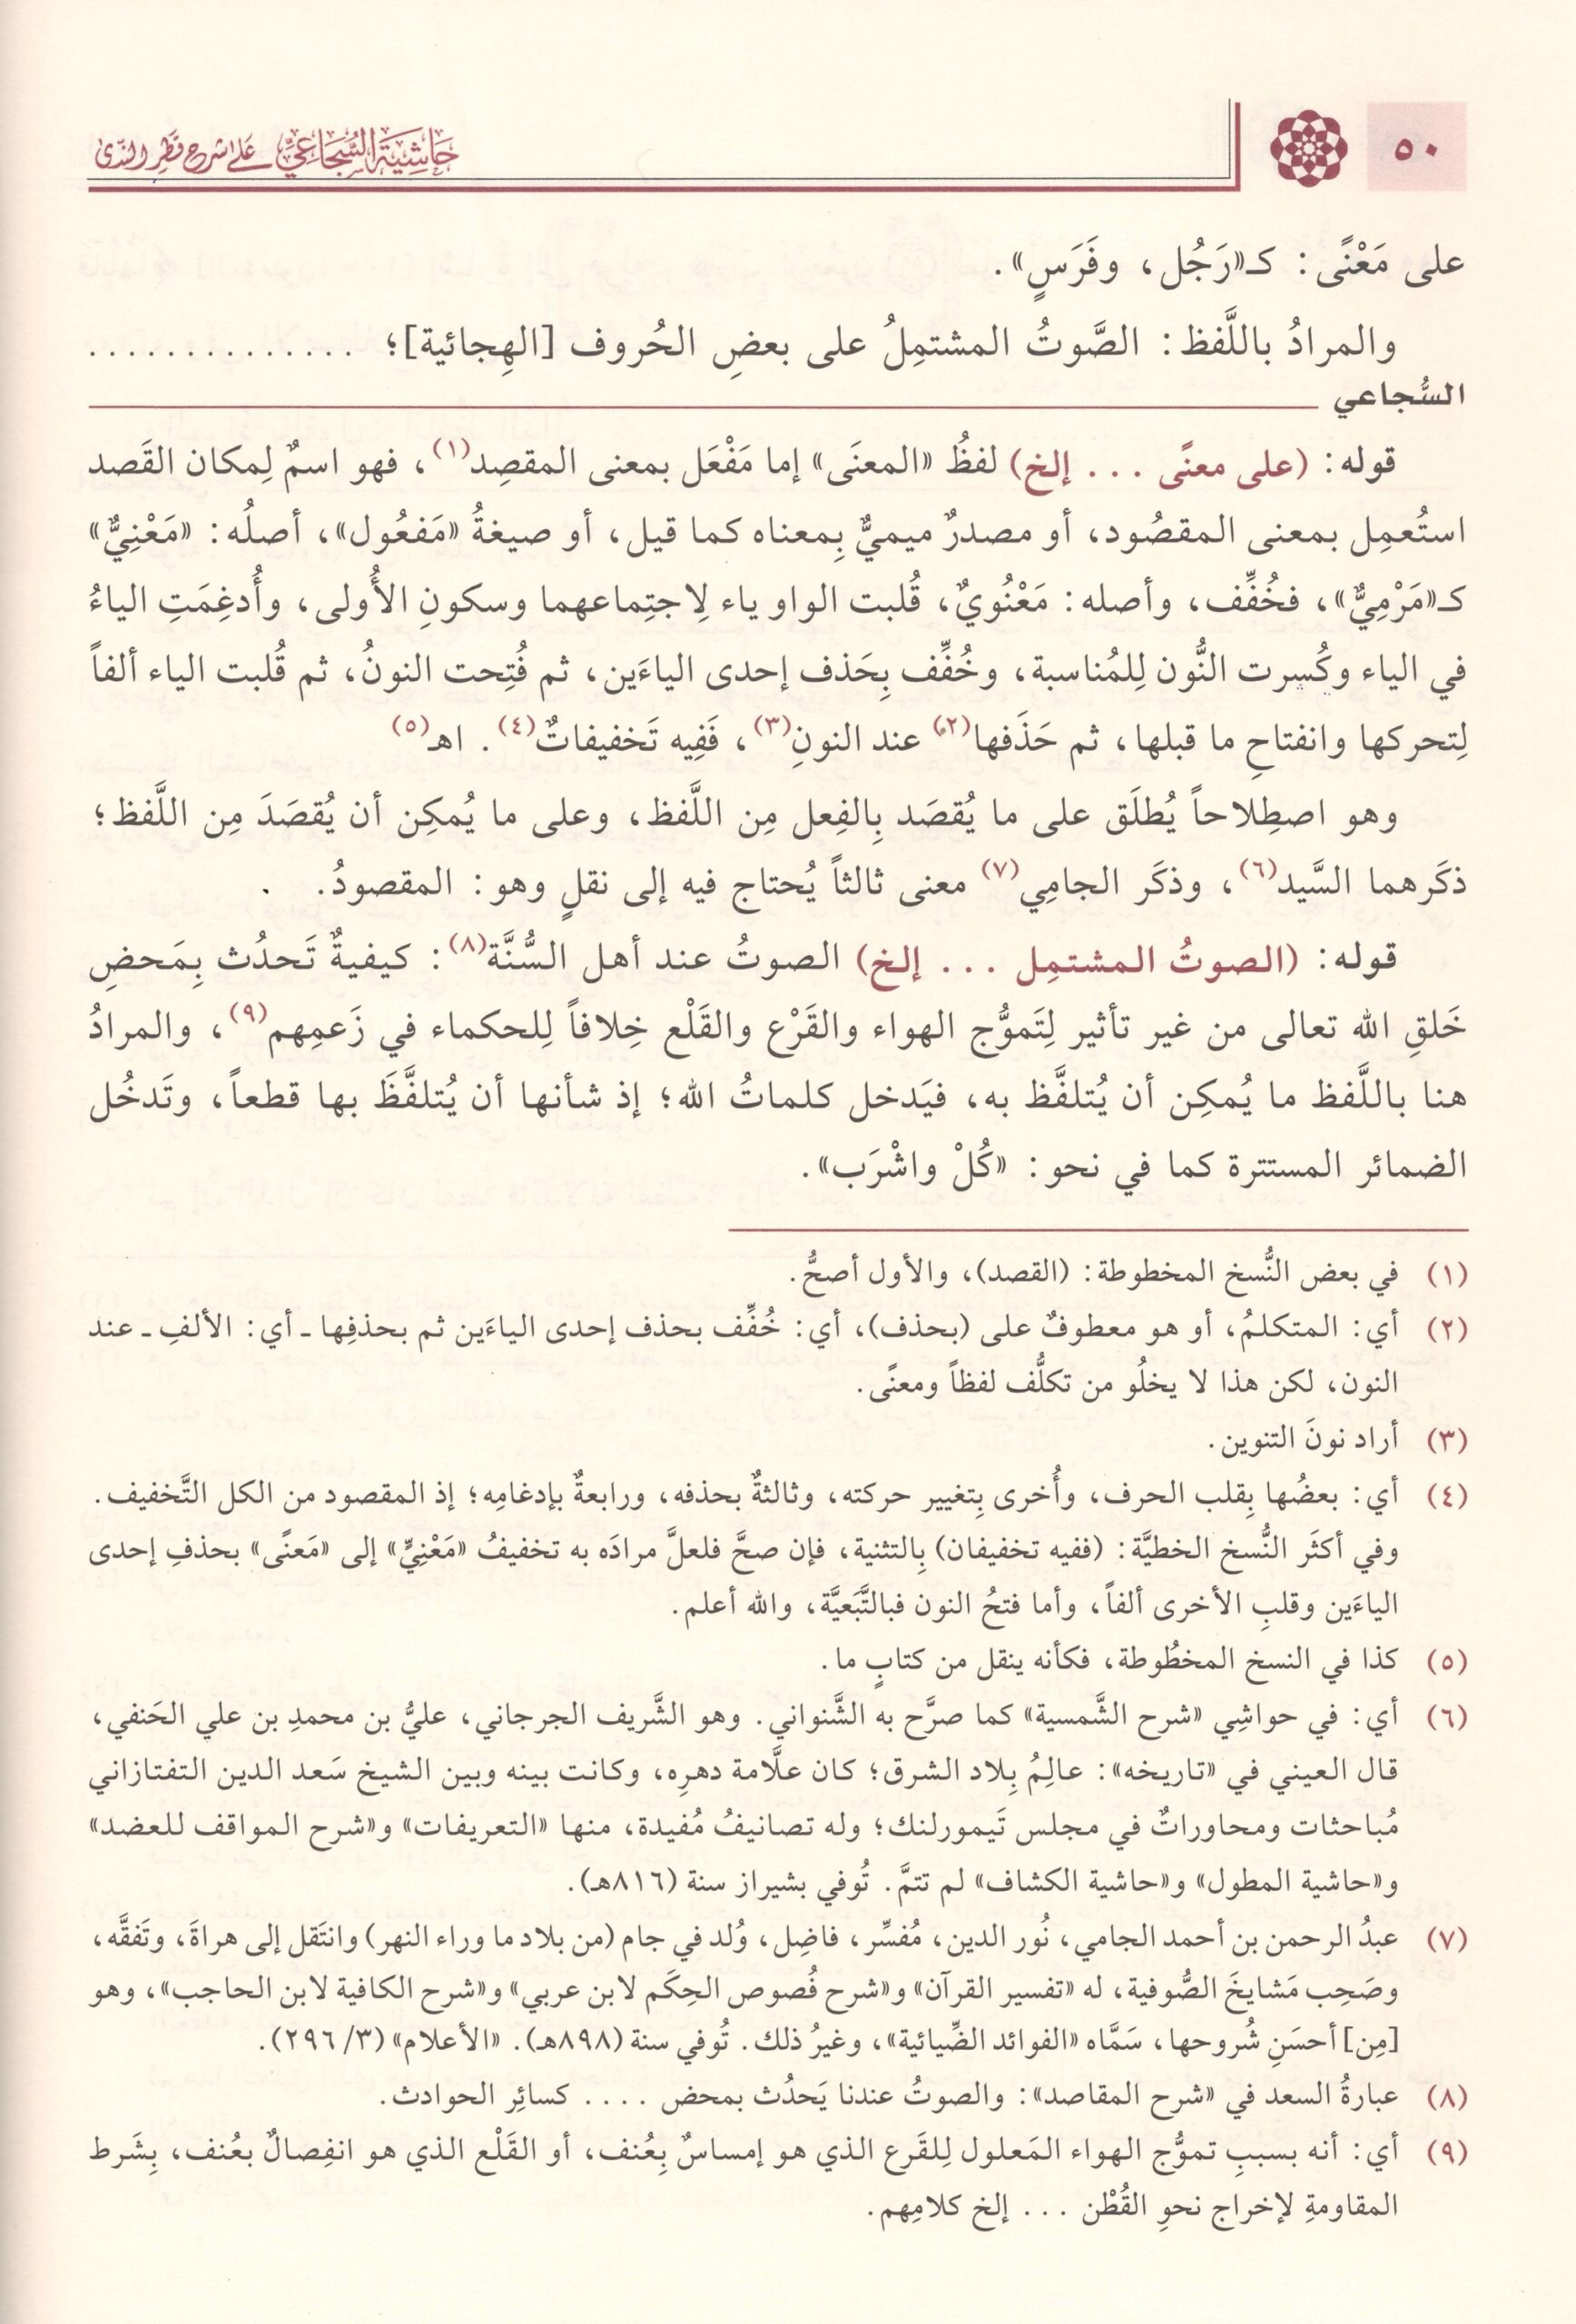 ٥٠
حَاشِيَة السُّجَاعِيّ عَلى شرح قَطْرِ النَّدى
على مَعْنًى: كـ«رَجُل، وفَرَسٍ».
والمرادُ باللَّفظ: الصَّوتُ المشتمِلُ على بعضِ الحُروف [الهِجائية]؛ ..............
السُّجاعي
قوله: (على معنًى ... إلخ) لفظُ «المعنَى» إما مَفْعَل بمعنى المقصِد(١)، فهو اسمٌ لِمكان القَصد
استُعمِل بمعنى المقصُود، أو مصدرٌ ميميٌّ بِمعناه كما قيل، أو صيغةُ «مَفعُول»، أصلُه: «مَعْنِيٌّ»
كـ«مَرْمِيٌّ»، فخُفِّف، وأصله: مَعْنُويٌ، قُلبت الواو ياء لِاجتِماعهما وسكونِ الأُولى، وأُدغِمَتِ الياءُ
في الياء وكُسِرت النُّون لِلمُناسبة، وخُفِّف بِحَذف إحدى الياءَين، ثم فُتِحت النونُ، ثم قُلبت الياء ألفاً
لِتحركها وانفتاحِ ما قبلها، ثم حَذَفها(٢) عند النونِ(٣)، فَفِيه تَخفيفاتٌ(٤). اهـ(٥)
وهو اصطِلاحاً يُطلَق على ما يُقصَد بِالفِعل مِن اللَّفظ، وعلى ما يُمكِن أن يُقصَدَ مِن اللَّفظ؛
ذكَرهما السَّيد(٦)، وذكَر الجامِي(٧) معنى ثالثاً يُحتاج فيه إلى نقلٍ وهو: المقصودُ.
قوله: (الصوتُ المشتمِل ... إلخ) الصوتُ عند أهل السُّنَّة(٨): كيفيةٌ تَحدُث بِمَحضِ
خَلقِ الله تعالى من غير تأثير لِتَموُّج الهواء والقَرْع والقَلْع خِلافاً لِلحكماء في زَعمِهم(٩)، والمرادُ
هنا باللَّفظ ما يُمكِن أن يُتلفَّظ به، فيَدخل كلماتُ الله؛ إذ شأنها أن يُتلفَّظَ بها قطعاً، وتَدخُل
الضمائر المستترة كما في نحو: «كُلْ واشْرَب».
(١) في بعض النُّسخ المخطوطة: (القصد)، والأول أصحُّ.
(٢) أي: المتكلمُ، أو هو معطوفٌ على (بحذف)، أي: خُفِّف بحذف إحدى الياءَين ثم بحذفِها ـ أي: الألفِ ـ عند
النون، لكن هذا لا يخلُو من تكلُّف لفظاً ومعنًى.
(٣) أراد نونَ التنوين.
(٤) أي: بعضُها بِقلب الحرف، وأُخرى بِتغيير حركته، وثالثةٌ بحذفه، ورابعةٌ بإدغامِه؛ إذ المقصود من الكل التَّخفيف.
وفي أكثَر النُّسخ الخطيَّة: (ففيه تخفيفان) بِالتثنية، فإن صحَّ فلعلَّ مرادَه به تخفيفُ «مَعْنِيٍّ» إلى «مَعنًى» بحذفِ إحدى
الياءَين وقلبِ الأخرى ألفاً، وأما فتحُ النون فبالتَّبَعيَّة، والله أعلم.
(٥) كذا في النسخ المخطُوطة، فكأنه ينقل من كتابٍ ما.
(٦) أي: في حواشِي «شرح الشَّمسية» كما صرَّح به الشَّنواني. وهو الشَّريف الجرجاني، عليُّ بن محمدِ بن علي الحَنفي،
قال العيني في «تاريخه»: عالِمُ بِلاد الشرق؛ كان علَّامة دهرِه، وكانت بينه وبين الشيخ سَعد الدين التفتازاني
مُباحثات ومحاوراتٌ في مجلس تَيمورلنك؛ وله تصانيفُ مُفيدة، منها «التعريفات» و«شرح المواقف للعضد»
و«حاشية المطول» و«حاشية الكشاف» لم تتمَّ. تُوفي بشيراز سنة (٨١٦هـ).
(٧) عبدُ الرحمن بن أحمد الجامي، نُور الدين، مُفسِّر، فاضِل، وُلد في جام (من بلاد ما وراء النهر) وانتَقل إلى هراةَ، وتَفقَّه،
وصَحِب مَشايخَ الصُّوفية، له «تفسير القرآن» و«شرح فُصوص الحِكَم لابن عربي» و«شرح الكافية لابن الحاجب»، وهو
[مِن] أحسَنِ شُروحها، سَمَّاه «الفوائد الضِّيائية»، وغيرُ ذلك. تُوفي سنة (٨٩٨هـ). «الأعلام» (٢٩٦/٣).
(٨) عبارةُ السعد في «شرح المقاصد»: والصوتُ عندنا يَحدُث بمحض .... كسائِر الحوادث.
(٩) أي: أنه بسببِ تموُّج الهواء المَعلول لِلقَرع الذي هو إمساسٌ بِعُنف، أو القَلْع الذي هو انفِصالٌ بعُنف، بِشَرط
المقاومةِ لإخراج نحوِ القُطْن ... إلخ كلامِهم.